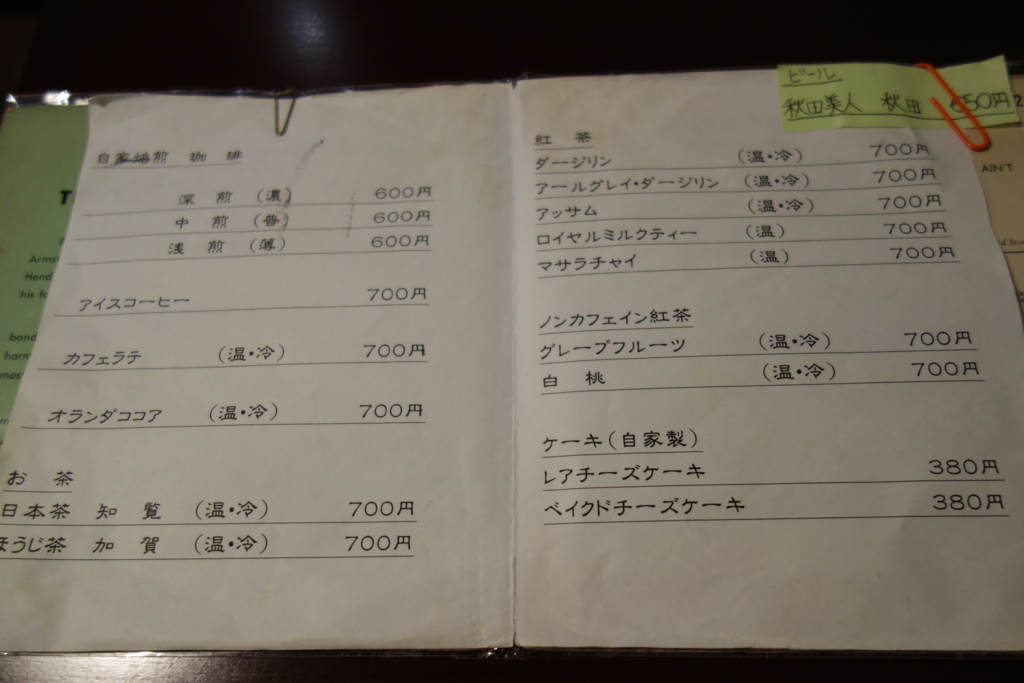 自家焙煎 珈琲
深煎（濃） 600円
中煎（普） 600円
浅煎（薄） 600円
アイスコーヒー 700円
カフェラテ （温・冷） 700円
オランダココア （温・冷） 700円
お茶
日本茶 知覧 （温・冷） 700円
ほうじ茶 加賀 （温・冷） 700円
ビール
秋田美人 秋田 650円
紅茶
ダージリン （温・冷） 700円
アールグレイ・ダージリン （温・冷） 700円
アッサム （温・冷） 700円
ロイヤルミルクティー （温） 700円
マサラチャイ （温） 700円
ノンカフェイン紅茶
グレープフルーツ （温・冷） 700円
白桃 （温・冷） 700円
ケーキ（自家製）
レアチーズケーキ 380円
ベイクドチーズケーキ 380円
T
Arms
Hend
his fo
band
harm
mos
AIN'T